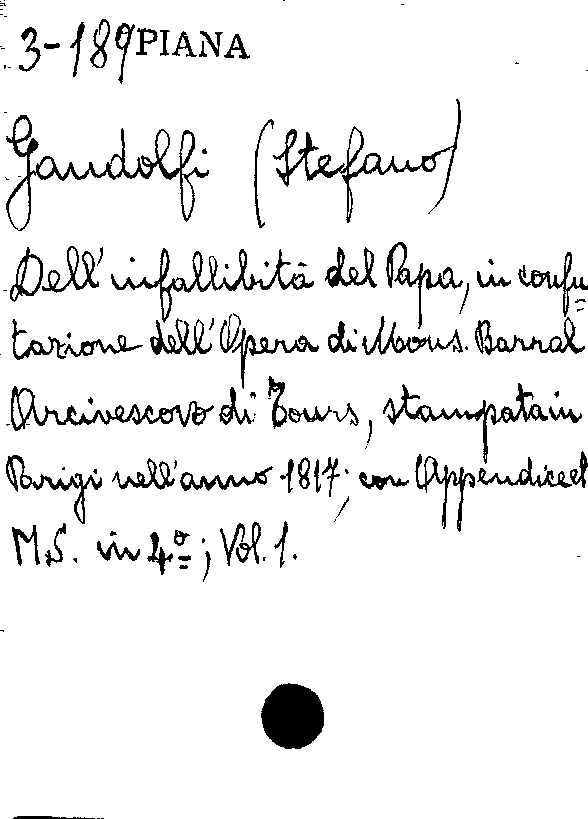 3-189 PIANA
Gandolfi (Stefano)
Dell'infallibità del Papa, in confu=
tazione dell'Opera di Mons. Barral
Arcivescovo di Tours, stampata in
Parigi nell'anno 1817; con Appendice
M.S. in 4º; Vol. 1.